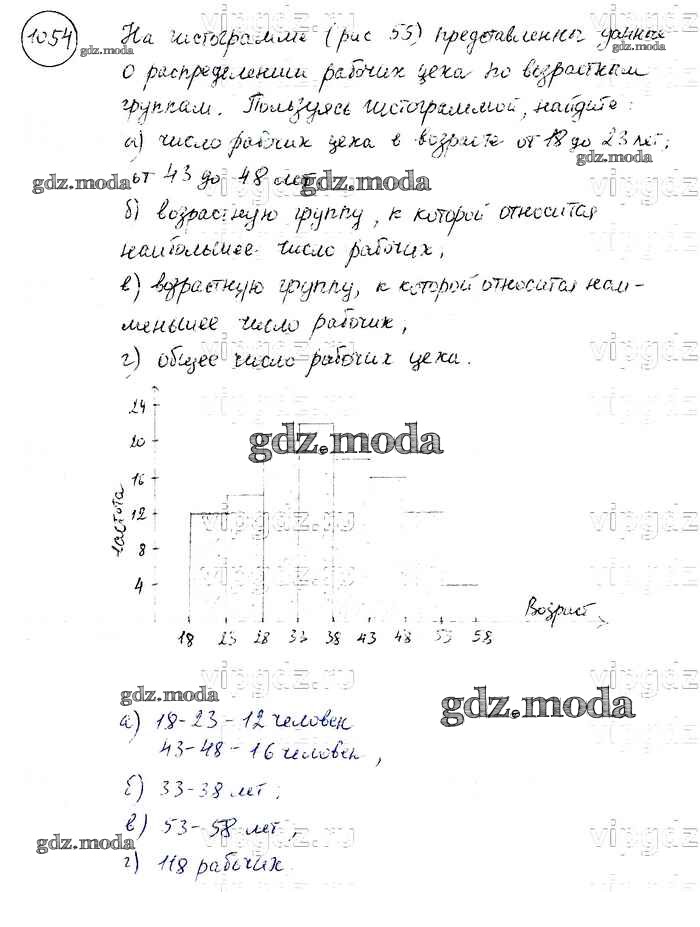 1054
На гистограмме (рис 55) представленны данные
о распределении рабочих цеха по возрастным
группам. Пользуясь гистограммой, найдите:
а) число рабочих цеха в возрасте от 18 до 23 лет;
от 43 до 48 лет
б) возрастную группу, к которой относится
наибольшее число рабочих;
в) возрастную группу, к которой относится наи-
меньшее число рабочих;
г) общее число рабочих цеха.
24
20
16
12
8
4
частота
Возраст
18 23 28 33 38 43 48 53 58
а) 18-23-12 человек
43-48-16 человек,
б) 33-38 лет;
в) 53-58 лет,
г) 118 рабочих.
gdz.moda
gdz.moda
gdz.moda
gdz.moda
gdz.moda
gdz.moda
gdz.moda
gdz.moda
gdz.moda
vipgdz.ru